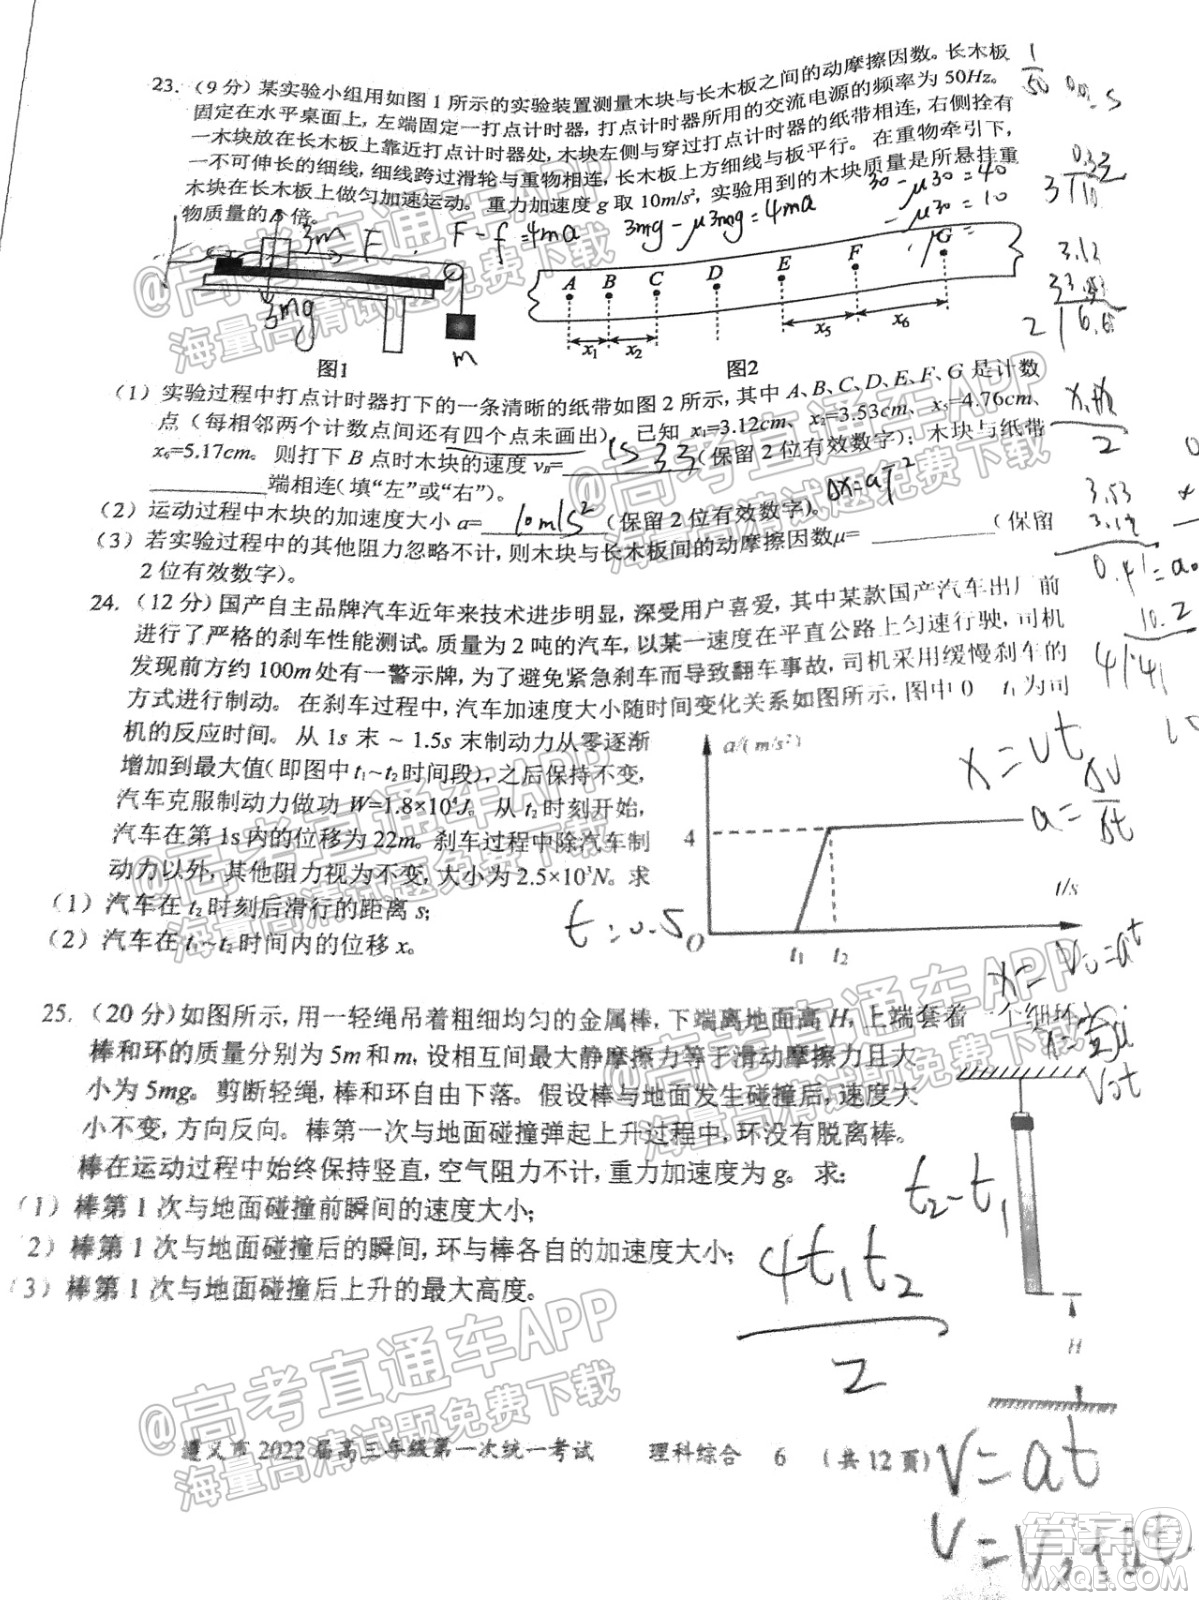 23.（9 分）某实验小组用如图 1 所示的实验装置测量木块与长木板之间的动摩擦因数。长木板
固定在水平桌面上，左端固定一打点计时器，打点计时器所用的交流电源的频率为 50Hz。
一木块放在长木板上靠近打点计时器处，木块左侧与穿过打点计时器的纸带相连，右侧拴有
一不可伸长的细线，细线跨过滑轮与重物相连，长木板上方细线与板平行。在重物牵引下，
木块在长木板上做匀加速运动。重力加速度 g 取 10m/s²，实验用到的木块质量是所悬挂重
物质量的 倍。
1/50
0.02 s
30-μ30=40
-μ30=10
3mg-μ3mg=4ma
F-f=4ma
3m
F
3mg
m
A B C D E F G
x₁ x₂ x₅ x₆
图1
图2
（1）实验过程中打点计时器打下的一条清晰的纸带如图 2 所示，其中 A、B、C、D、E、F、G 是计数
点（每相邻两个计数点间还有四个点未画出），已知 x₁=3.12cm、x₂=3.53cm、x₅=4.76cm、
x₆=5.17cm。则打下 B 点时木块的速度 v_B=________（保留 2 位有效数字）；木块与纸带
________端相连（填“左”或“右”）。
Δx=aT²
（2）运动过程中木块的加速度大小 a= 10m/s² （保留 2 位有效数字）。
（3）若实验过程中的其他阻力忽略不计，则木块与长木板间的动摩擦因数μ= ________（保留
2 位有效数字）。
3.12
2
3.53
3.12
0.41
10.2
4
24.（12 分）国产自主品牌汽车近年来技术进步明显，深受用户喜爱，其中某款国产汽车出厂前
进行了严格的刹车性能测试。质量为 2 吨的汽车，以某一速度在平直公路上匀速行驶，司机
发现前方约 100m 处有一警示牌，为了避免紧急刹车而导致翻车事故，司机采用缓慢刹车的
方式进行制动。在刹车过程中，汽车加速度大小随时间变化关系如图所示，图中 0 t₁ 为司
机的反应时间。从 1s 末 ~ 1.5s 末制动力从零逐渐
增加到最大值（即图中 t₁~t₂ 时间段），之后保持不变，
汽车克服制动力做功 W=1.8×10⁴J。从 t₂ 时刻开始，
汽车在第 1s 内的位移为 22m。刹车过程中除汽车制
动力以外，其他阻力视为不变，大小为 2.5×10³N。求
（1）汽车在 t₂ 时刻后滑行的距离 s；
（2）汽车在 t₁~t₂ 时间内的位移 x。
a/(m/s²)
4
O t₁ t₂
t/s
x=vt
a=Δv/Δt
t=0.5
25.（20 分）如图所示，用一轻绳吊着粗细均匀的金属棒，下端离地面高 H，上端套着一个细环
棒和环的质量分别为 5m 和 m，设相互间最大静摩擦力等于滑动摩擦力且大
小为 5mg。剪断轻绳，棒和环自由下落。假设棒与地面发生碰撞后，速度大
小不变，方向反向。棒第一次与地面碰撞弹起上升过程中，环没有脱离棒。
棒在运动过程中始终保持竖直，空气阻力不计，重力加速度为 g。求：
（1）棒第 1 次与地面碰撞前瞬间的速度大小；
2）棒第 1 次与地面碰撞后的瞬间，环与棒各自的加速度大小；
（3）棒第 1 次与地面碰撞后上升的最大高度。
t₂-t₁
4t₁t₂
2
H
v=at
遵义市 2022 届高三年级第一次统一考试 理科综合 6 （共 12 页）
@高考直通车APP
海量高清试题免费下载
@高考直通车APP
海量高清试题免费下载
@高考直通车APP
海量高清试题免费下载
@高考直通车APP
海量高清试题免费下载
@高考直通车APP
海量高清试题免费下载
@高考直通车APP
海量高清试题免费下载
答案圈
MXQE.COM